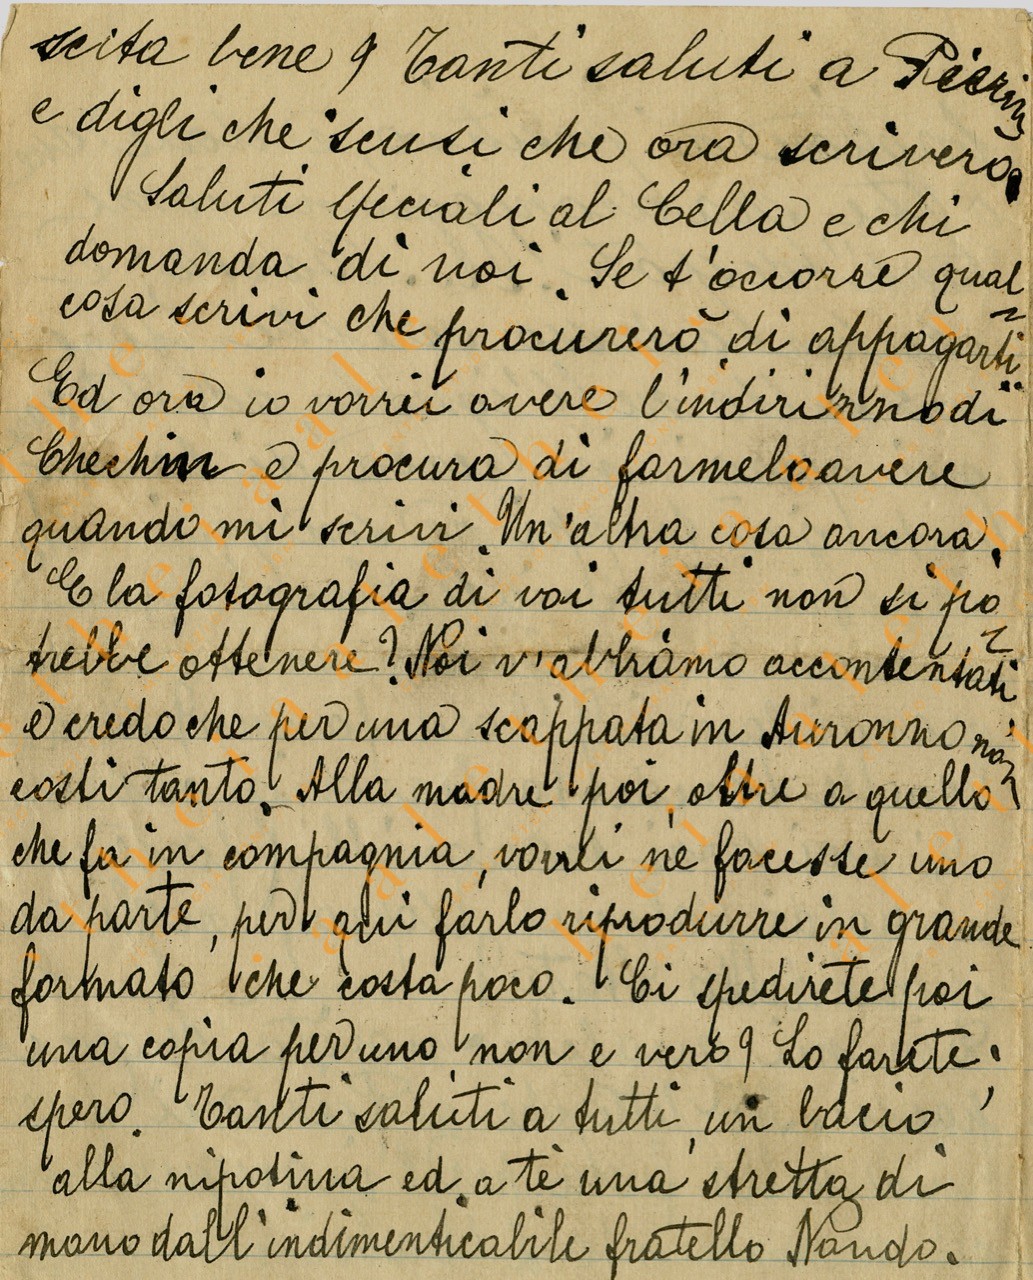 scita bene? Tanti saluti a Pierin
e digli che scusi che ora scriverò.
Saluti speciali al Cella e chi
domanda di noi. Se t'occorre qual-
cosa scrivi che procurerò di appagarti.
Ed ora io vorrei avere l'indirizzo di
Chechin e procura di farmelo avere
quando mi scrivi. Un'altra cosa ancora.
E la fotografia di voi tutti non si po-
trebbe ottenere? Noi v'abbiamo accontentati
e credo che per una scappata in Auronzo non
costi tanto. Alla madre poi, oltre a quello
che fa in compagnia, vorrei ne facesse uno
da parte, per qui farlo riprodurre in grande
formato che costa poco. Ci spedirete poi
una copia per uno, non e vero? Lo farete;
spero. Tanti saluti a tutti, un bacio
alla nipotina ed a te una stretta di
mano dall'indimenticabile fratello Nando.